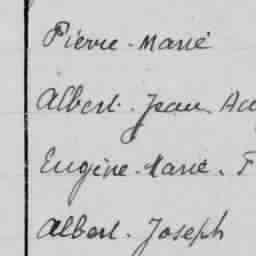 Pierre-Marie
Albert-Jean
Eugène-Marie
Albert-Joseph